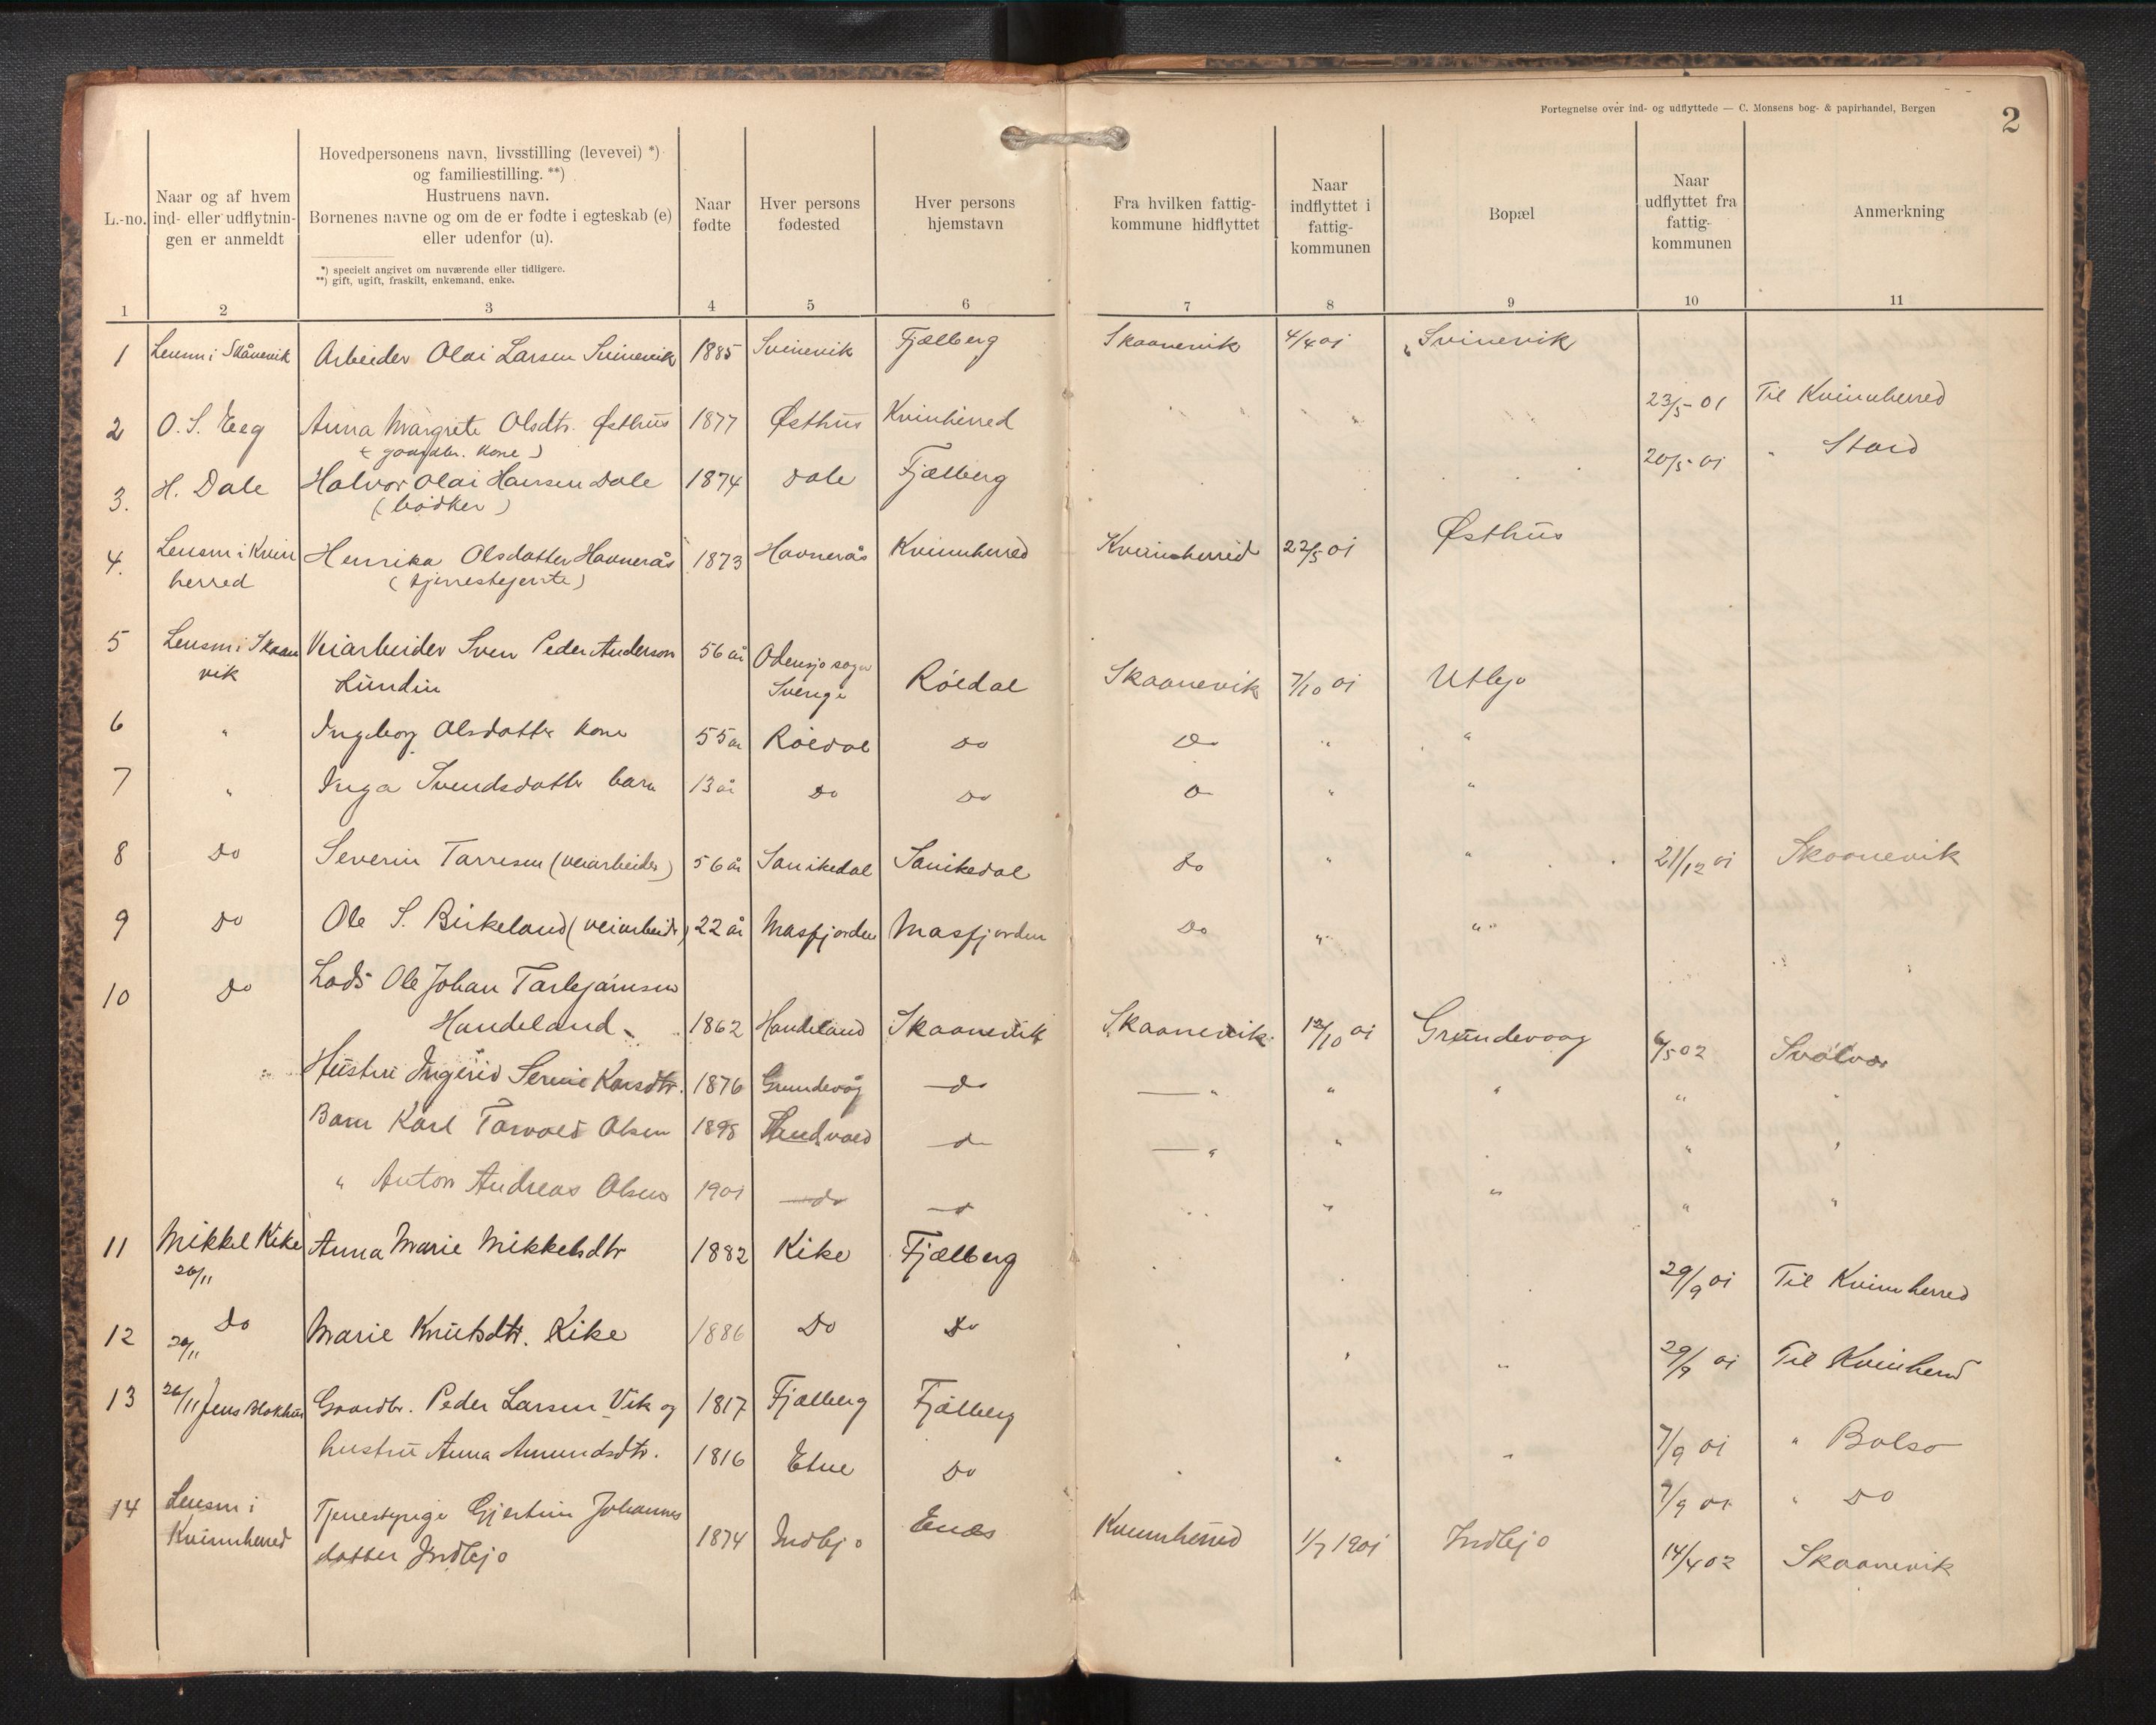 Fortegnelse over ind- og udflyttede — C. Monsens bog- & papirhandel, Bergen
2
L.-no.
Naar og af hvem
ind- eller udflytnin-
gen er anmeldt
Hovedpersonens navn, livsstilling (levevei) *)
og familiestilling. **)
Hustruens navn.
Børnenes navne og om de er fødte i egteskab (e)
eller udenfor (u).
*) specielt angivet om nuværende eller tidligere.
**) gift, ugift, fraskilt, enkemand, enke.
Naar
fødte
Hver persons
fødested
Hver persons
hjemstavn
Fra hvilken fattig-
kommune hidflyttet
Naar
indflyttet i
fattig-
kommunen
Bopæl
Naar
udflyttet fra
fattig-
kommunen
Anmerkning
1 2 3 4 5 6 7 8 9 10 11
1 Lensm i Skånevik Arbeider Olai Larsen Svinevik 1885 Svinevik Fjælberg Skaanevik 4/4 01 Svinevik
2 O. S. Eeg Anna Margrete Olsdtr. Østhus 1877 Østhus Kvinherred 23/5-01 Til Kvinnherred
(gaardbr. kone)
3. H. Dale Halvor Olai Hansen Dale 1874 Dale Fjælberg 20/5-01 " Stord
(bødker)
4. Lensm i Kvin Henrika Olsdatter Havnerås 1873 Havnerås Kvinnherred Kvinnherred 22/5 01 Østhus
herred (tjenestejente)
5 Lensm i Skaan Veiarbeider Sven Peder Anderson 56 år Odensjø sogn
vik Lundin Sverige Røldal Skaanevik 7/10 01 Utbjo
6 " Ingeborg Olsdatter kone 55 år Røldal Do Do " "
7 " Inga Svendsdatter barn 13 år Do Do Do " "
8 Do Severin Tarresen (veiarbeider) 56 år Sanikedal Sanikedal Do " " 21/12 01 Skaanevik
9 Do Ole S. Birkeland (veiarbeidr) 22 år Masfjorden Masfjorden Do " "
10 Do Lods Ole Johan Torbjørnsen
Handeland 1862 Handeland Skaanevik Skaanevik 12/10 01 Grundevaag 6/5 02 Svolvær
Hustru Ingerid Serine Karsdtr. 1876 Grundevåg do — " " " " "
Barn Karl Torvald Olsen 1898 do — " " " " "
" Anton Andreas Olsen 1901 do do " " " " "
11 Mikkel Kike Anna Marie Mikkelsdtr 1882 Kike Fjælberg 29/9 01 Til Kvinnherred
26/11
12 Do Marie Knutsdtr. Kike 1886 Do Do 29/9 01 Til Kvinherd
26/11
13 26/11 Jens Blokhus Gaardbr. Peder Larsen Vik og 1817 Fjælberg Fjælberg 7/9 01 " Bolsø
hustru Anna Amundsdtr. 1816 Etne Do 7/9 01 " Do
14 Lensm i Tjenestepige Gjertine Johannes
Kvinnherred datter Indbjo 1874 Indbjo Enæs Kvinnherred 1/7 1901 Indbjo 14/4 02 Skaanevik